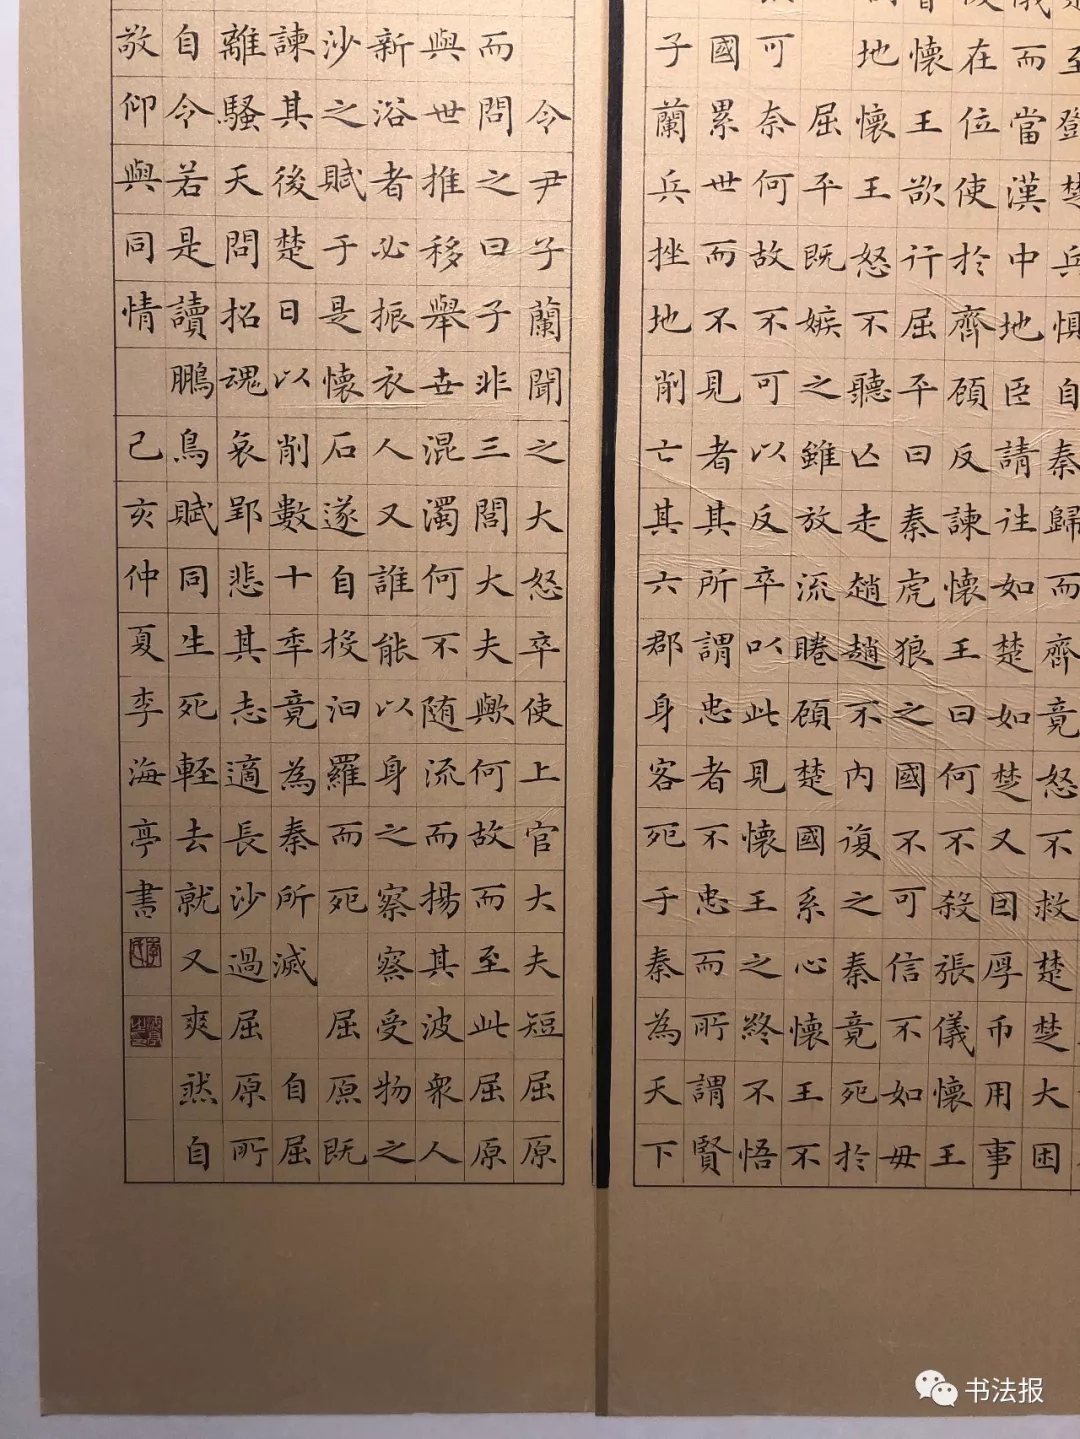 至登楚兵惧自秦歸而齊竟怒不救楚楚大困
儀而當漢中地臣請往如楚如楚又因厚币用事
在位使於齊顧反諫懷王曰何不殺張儀懷王
懷王欲行屈平曰秦虎狼之國不可信不如毋
地懷王怒不聽亡走趙趙不內復之秦竟死於
屈平既嫉之雖放流睠顧楚國系心懷王不
可奈何故不可以反卒以此見懷王之終不悟
國累世而不見者其所謂忠者不忠而所謂賢
子蘭兵挫地削亡其六郡身客死于秦為天下
令尹子蘭聞之大怒卒使上官大夫短屈原
而問之曰子非三閭大夫歟何故而至此屈原
與世推移舉世混濁何不随流而揚其波衆人
新浴者必振衣人又誰能以身之察察受物之
沙之賦于是懷石遂自投汨羅而死 屈原既
諫其後楚日以削數十年竟為秦所滅 自屈
離騷天問招魂哀郢悲其志適長沙過屈原所
自令若是讀鵬鳥賦同生死輕去就又爽然自
敬仰與同情 己亥仲夏李海亭書
书法报